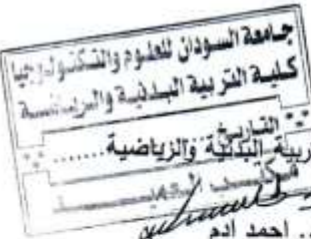 جامعة السودان للعلوم والتكنولوجيا
كلية التربية البدنية والرياضية
التاريخ
ربية البدنية والرياضية.......
مكتب العميد
.. احمد ادم